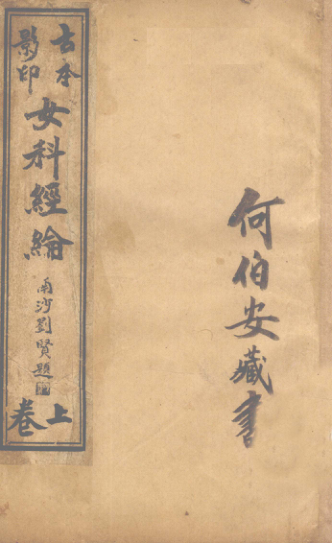 古本
影印
女科經綸
南沙劉賢題
上卷
何伯安藏書